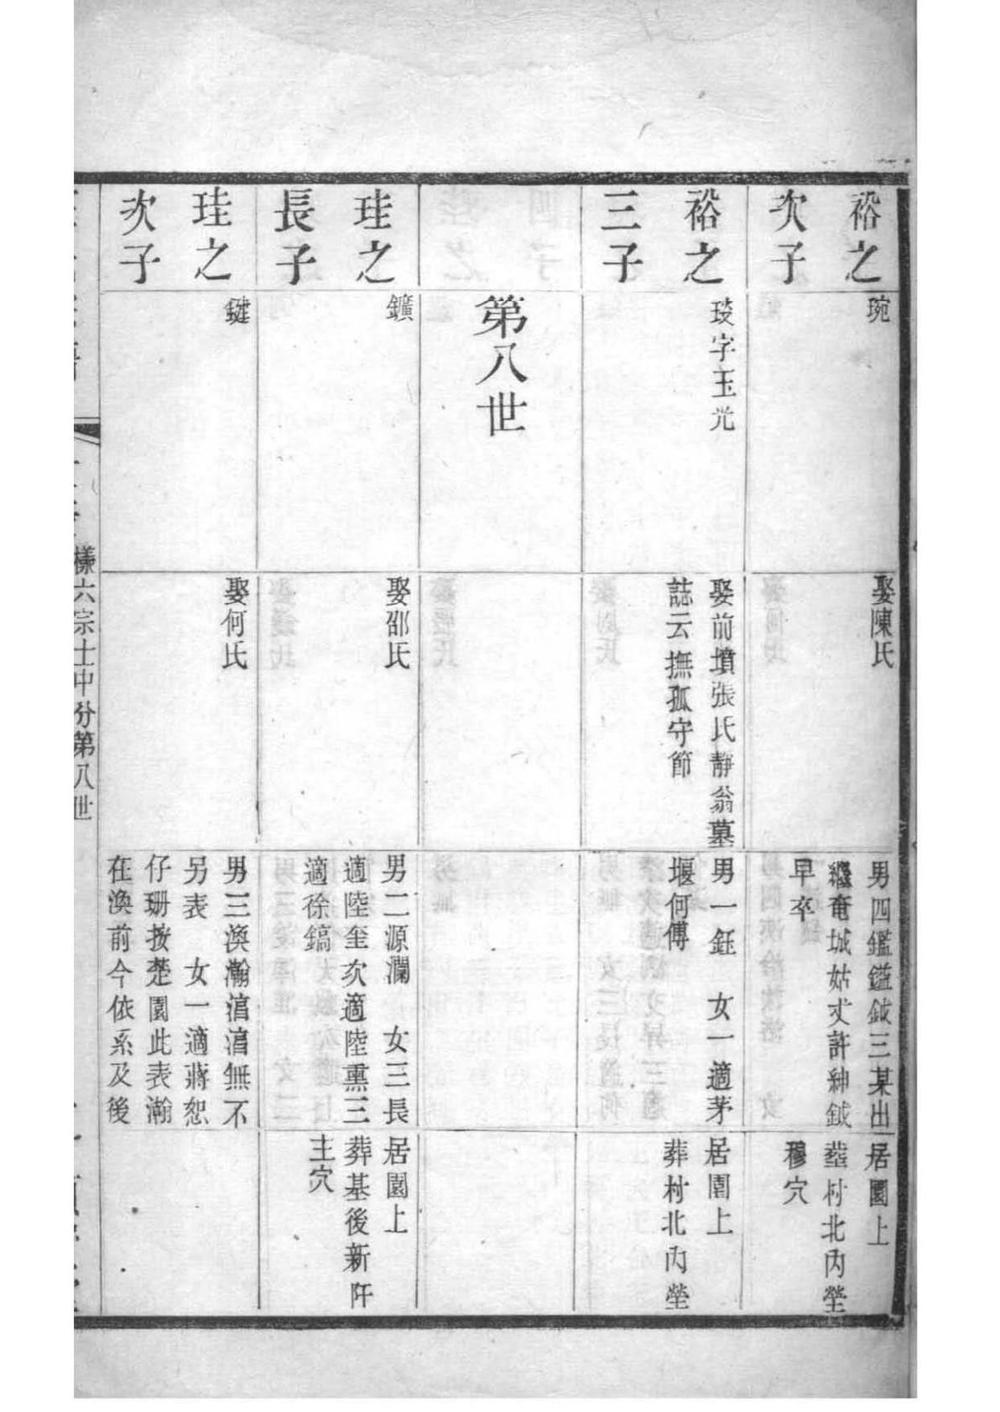 裕之
次子
琬
娶陳氏
男四鑑鎰鉞三某出
繼奄城姑丈許紳鉞
早卒
居園上
塟村北內塋
穆穴
裕之
三子
琰字玉光
娶前墳張氏靜翁墓
誌云撫孤守節
男一鈺　女一適茅
堰何傅
居園上
葬村北內塋
第八世
珪之
長子
鑛
娶邵氏
男二源瀾　女三長
適陸奎次適陸熏三
適徐鎬
居園上
葬基後新阡
主穴
珪之
次子
鍵
娶何氏
男三渙瀚涫涫無不
另表　女一適蔣恕
仔珊按楚園此表瀚
在渙前今依系及後
樣六宗士中分第八世